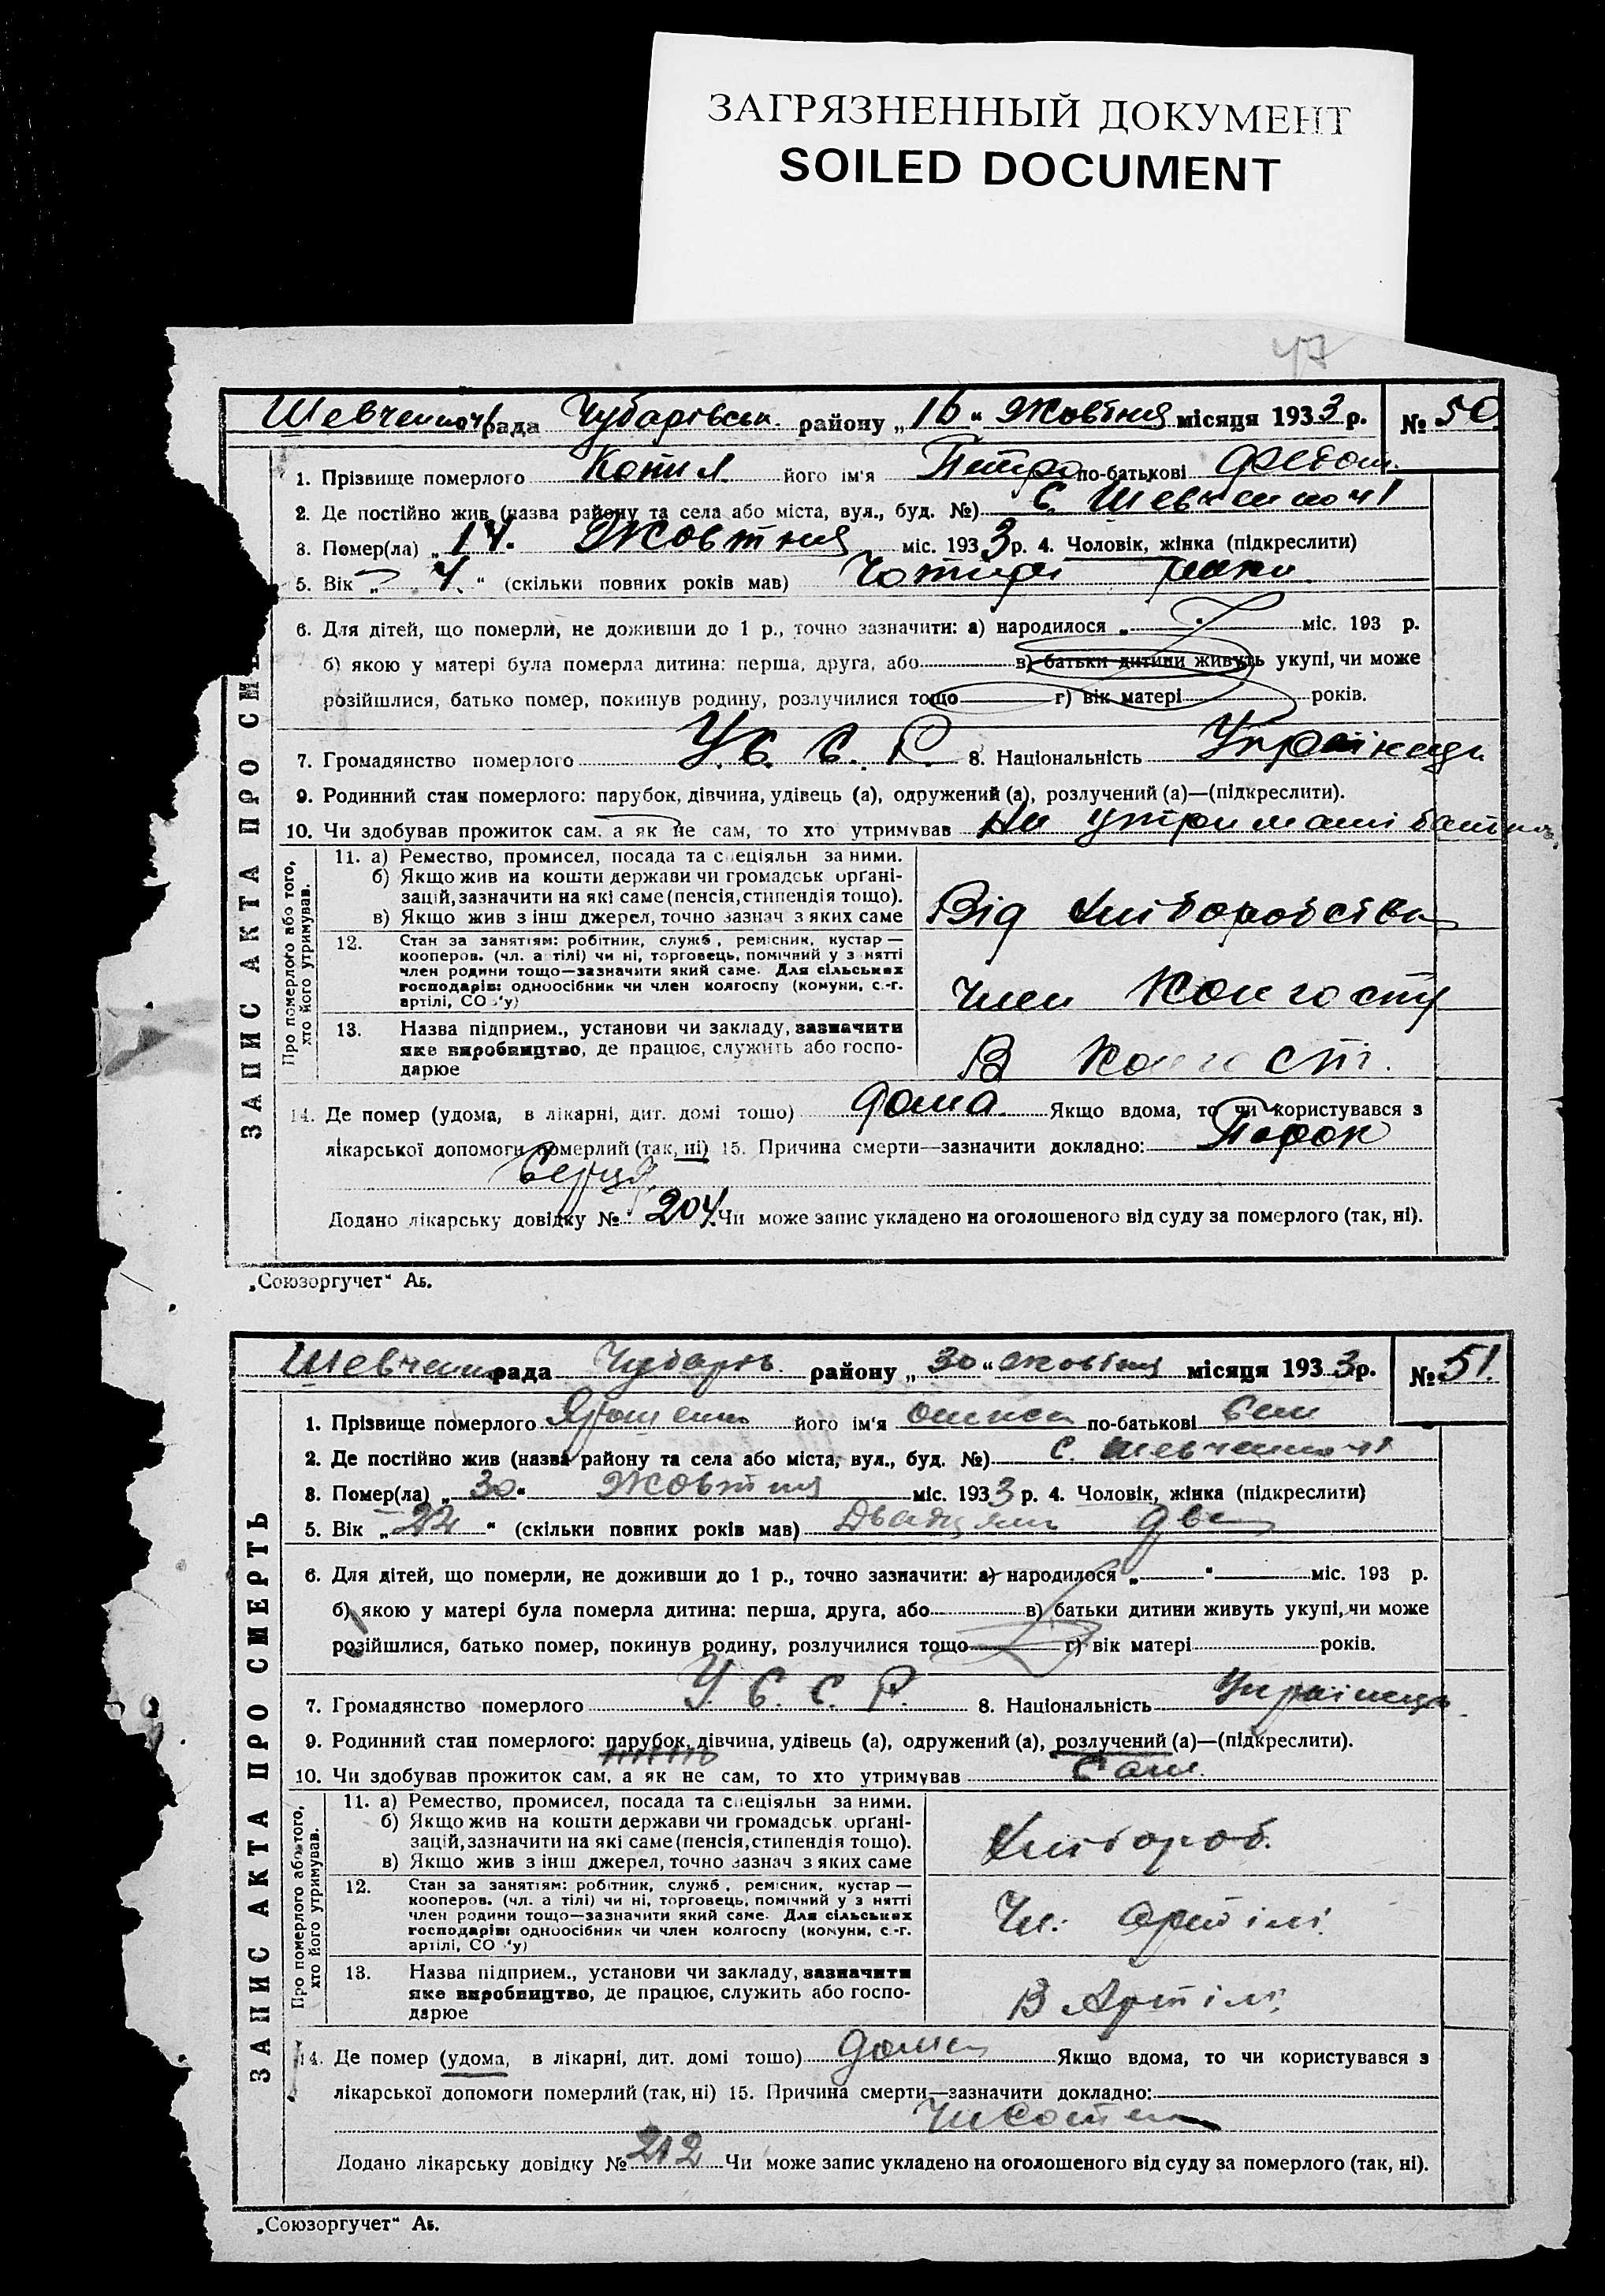 ЗАГРЯЗНЕННЫЙ ДОКУМЕНТ
SOILED DOCUMENT
47
рада Чубарівськ. району „16“ Жовтня місяця 1933 р. № 50.
ЗАПИС АКТА ПРО СМЕ
1. Прізвище померлого Копил його ім'я Петро по-батькові Федот.
2. Де постійно жив (назва району та села або міста, вул., буд. №) С.
3. Помер(ла) „14. Жовтня міс. 1933 р. 4. Чоловік, жінка (підкреслити)
5. Вік „4.“ (скільки повних років мав) Чотири роки
6. Для дітей, що померли, не доживши до 1 р., точно зазначити: а) народилося „ “ міс. 193 р.
б) якою у матері була померла дитина: перша, друга, або в) батьки дитини живуть укупі, чи може
розійшлися, батько помер, покинув родину, розлучилися тощо г) вік матері років.
7. Громадянство померлого У. С. С. Р. 8. Національність Українець
9. Родинний стан померлого: парубок, дівчина, удівець (а), одружений (а), розлучений (а)—(підкреслити).
10. Чи здобував прожиток сам, а як не сам, то хто утримував На утримані батька
Про померлого або того, хто його утримував.
11. а) Ремество, промисел, посада та спеціяльн за ними.
б) Якщо жив на кошти держави чи громадськ органі-
зацій, зазначити на які саме (пенсія, стипендія тощо).
в) Якщо жив з інш джерел, точно зазнач з яких саме
Від хліборобства
12. Стан за заняттям: робітник, служб., ремісник, кустар —
кооперов. (чл. артілі) чи ні, торговець, помічний у занятті
член родини тощо—зазначити який саме. Для сільських
господарів: одноосібник чи член колгоспу (комуни, с.-г.
артілі, СО 'у)
Член Колгоспу
13. Назва підприєм., установи чи закладу, зазначити
яке виробництво, де працює, служить або госпо-
дарює
В Колгоспі.
14. Де помер (удома, в лікарні, дит. домі тощо) дома. Якщо вдома, то чи користувався з
лікарської допомоги померлий (так, ні) 15. Причина смерти—зазначити докладно: Порок
Серця.
Додано лікарську довідку № 204. Чи може запис укладено на оголошеного від суду за померлого (так, ні).
„Союзоргучет“ Аб.
рада Чубарів. району „30“ жовтня місяця 1933 р. № 51.
ЗАПИС АКТА ПРО СМЕРТЬ
1. Прізвище померлого його ім'я по-батькові
2. Де постійно жив (назва району та села або міста, вул., буд. №) С.
3. Помер(ла) „30“ Жовтня міс. 1933 р. 4. Чоловік, жінка (підкреслити)
5. Вік „22“ (скільки повних років мав) Двадцять два
6. Для дітей, що померли, не доживши до 1 р., точно зазначити: а) народилося „ “ міс. 193 р.
б) якою у матері була померла дитина: перша, друга, або в) батьки дитини живуть укупі, чи може
розійшлися, батько помер, покинув родину, розлучилися тощо г) вік матері років.
7. Громадянство померлого У. С. С. Р. 8. Національність Українець
9. Родинний стан померлого: парубок, дівчина, удівець (а), одружений (а), розлучений (а)—(підкреслити).
10. Чи здобував прожиток сам, а як не сам, то хто утримував Сам.
Про померлого або того, хто його утримував.
11. а) Ремество, промисел, посада та спеціяльн за ними.
б) Якщо жив на кошти держави чи громадськ органі-
зацій, зазначити на які саме (пенсія, стипендія тощо).
в) Якщо жив з інш джерел, точно зазнач з яких саме
Хлібороб.
12. Стан за заняттям: робітник, служб., ремісник, кустар —
кооперов. (чл. артілі) чи ні, торговець, помічний у занятті
член родини тощо—зазначити який саме. Для сільських
господарів: одноосібник чи член колгоспу (комуни, с.-г.
артілі, СО 'у)
Чл. артілі
13. Назва підприєм., установи чи закладу, зазначити
яке виробництво, де працює, служить або госпо-
дарює
В Артілі
14. Де помер (удома, в лікарні, дит. домі тощо) дома Якщо вдома, то чи користувався з
лікарської допомоги померлий (так, ні) 15. Причина смерти—зазначити докладно:
Додано лікарську довідку № 212 Чи може запис укладено на оголошеного від суду за померлого (так, ні).
„Союзоргучет“ Аб.